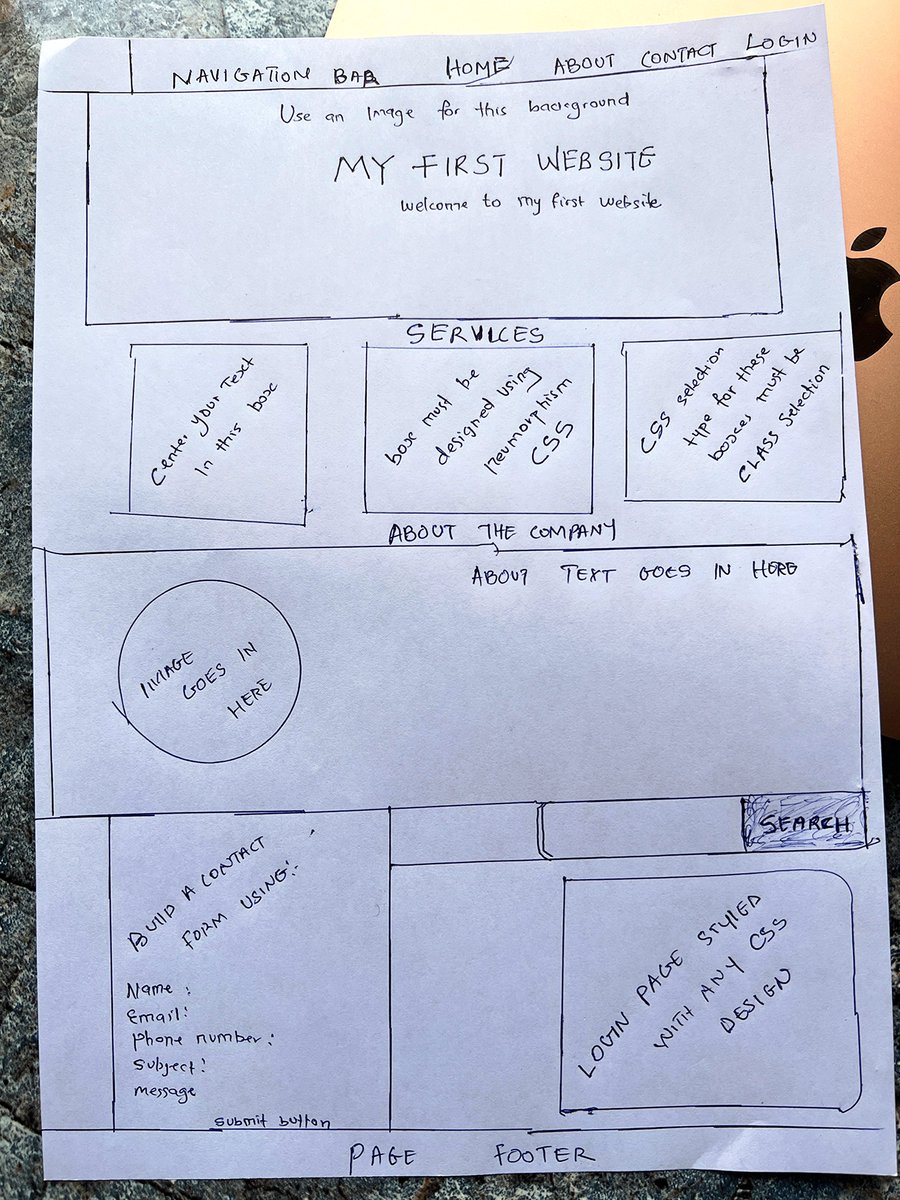 NAVIGATION BAR HOME ABOUT CONTACT LOGIN
Use an Image for this background
MY FIRST WEBSITE
welcome to my first website
SERVICES
Center your Text
In this box
box must be
designed using
neumorphism
CSS
CSS selection
type for these
boxes must be
CLASS Selection
ABOUT THE COMPANY
ABOUT TEXT GOES IN HERE
IMAGE
GOES IN
HERE
SEARCH
BUILD A CONTACT
FORM USING:-
Name :
Email:
Phone number:
Subject:
message
submit button
LOGIN PAGE STYLED
WITH ANY CSS
DESIGN
PAGE FOOTER